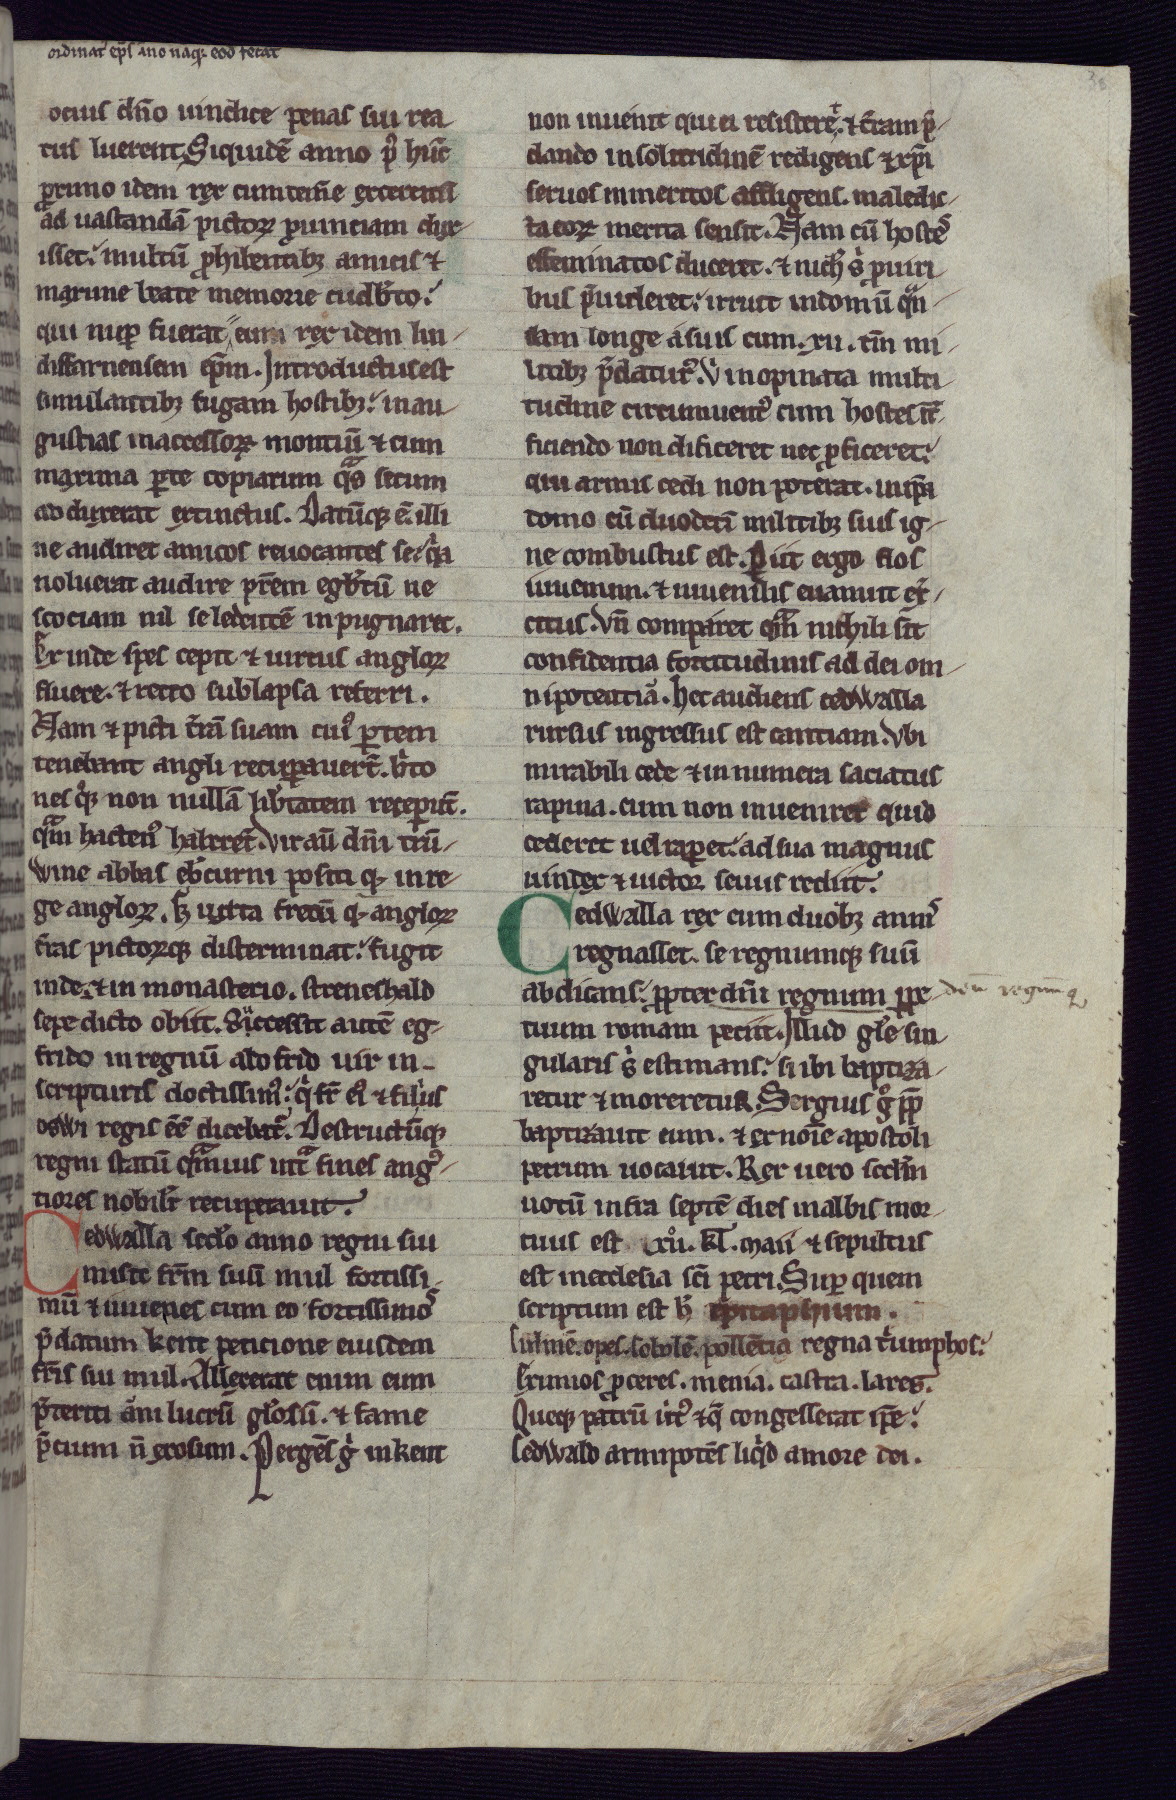 ordinat eps āno naq; eod fecat
ocius dn̄o uindice penas sui rea
tus luerent. Siquidē anno p᷒ hūc
ꝓximo idem rex cum tem̄e exercitū
ad uastandā pictoꝝ ꝓuinciam dux
isset. multū ꝓhibentibꝫ amicis ⁊
maxime beate memorie cudb̄to.
qui nuꝑ fuerat, eum rex idem lin
disfarnensem ep̄m. Introductus est
simulantibꝫ fugam hostibꝫ. in an
gustias inaccessoꝝ montiū ⁊ cum
maxima ꝑte copiarum qͣs secum
adduxerat extinctus. Datūqꝫ ē illi
ne audiret amicos reuocantes se. qͥa
noluerat audire pr̄em egb̄tū ne
scociam nil se ledentē inpugnaret.
Ex inde spes cepit ⁊ uirtus angloꝝ
fluere. ⁊ retro sublapsa referri.
Nam ⁊ picti t̄rā suam cui᷒ ꝑtem
tenebant angli recuꝑauer̄t. b̄to
nes qͦꝫ non nullā lib̄tatem receper̄t.
qͣm hacten᷒ haberet. Vir aū dn̄i trū
wine abbas eb̄curni positi qͥ in re
ge angloꝝ. sꝫ iuxta fretū qͦ angloꝝ
t̄ras pictoꝝqꝫ disterminat. fugit
inde. ⁊ in monasterio. streneshald
sepe dicto obiit. Successit autē eg
frido in regnū aldfrid uir in
scripturis doctissim᷒. qͥ fr̄ ei᷒ ⁊ filius
oswi regis eē dicebat᷒. Destructūqꝫ
regni statū qͣmuis intͣ fines ang᷒
tiores nobilit̄ recuperauit.
Cedwalla sc̄do anno regni sui
misit fr̄m suū mul fortissi
mū ⁊ iuuenes cum eo fortissimos
p̄datum kent peticione eiusdem
fr̄is sui mul. Allexerat enim eum
p̄teriti āni lucrū gl̄osū. ⁊ fame
p̄cium n̄ exosum. Pergēs gͦ in kent
non inuenit qui ei resisteret. ⁊ t̄ram p̄
dando in solitudinē redigens ⁊ xp̄i
seruos inmeritos affligens. maledic
ta eoꝝ merita sensit. Nam cū hostes
effeminatos duceret. ⁊ nichͥ sͥ ꝓ uiri
bus p̄uideret. irruit in domū qͣn
dam longe a suis cum .xii. tm̄ mi
litibꝫ p̄datur᷒. V inopinata multi
tudine circumuent᷒ cum hostes in̄t
ficiendo non dificeret nec ꝓficeret.
qui armis cedi non poterat. in ip̄a
domo cū duodecī militibꝫ suis ig
ne combustus est. Piit ergo flos
iuuenum. ⁊ iuuenilis euanuit ex᷒
citus. Vn̄ comparet qͣm nichili sit
confidentia fortitudinis ad dei om
nipotentiā. Hec audiens cedwalla
rursus ingressus est cantiam. Vbi
mirabili cede ⁊ innumera saciatus
rapina. cum non inueniret quid
cederet uel raperet. ad sua magnus
uindex ⁊ uictor seuus rediit.
Cedwalla rex cum duobꝫ annis
regnasset. se regnumqꝫ suū
abdicans. ꝓpter dnū regnum ꝑpe
tuum romam petiit. Illud gl̄e sin
gularis sͥ estimans. si ibi baptiza
retur ⁊ moreretur. Sergius gͦ pp̄
baptizauit eum. ⁊ ex noīe apostoli
petrum uocauit. Rex uero scd̄m
uotū infra septē dies in albis mor
tuus est .xii. kl. maii ⁊ sepultus
est in ecclesia sc̄i petri. Suꝑ quem
scriptum est h̄ epitaphium.
Culmē. opes. sobolē. pollētia regna t̄umphos.
Exuuios ꝓceres. menia. castra. lares.
Queqꝫ patrū uirt᷒ ⁊ qͤ congesserat ip̄e.
Cedwald armipotēs liqͥd amore dei.
dn̄m regnumq